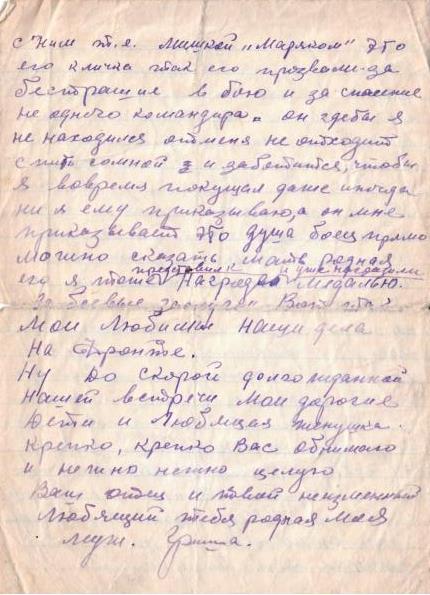 с ним т.е. Мишкой „Маряком" это
его кличка так его прозвали-за
бестрашие в бою и за спасение
не одного командира. он гдебы я
не находился отменя не отходит
спит сомной и заботится, чтобы
я вовремя покушал даже иногда
ни я ему приказываю, а он мне
приказывает это душа боец прямо
можно сказать, мать родная
представил и уже наградили
его я тоже Наградой Медалью.
За боевые заслуги Вот так
Мои Любимые наши дела
На Фронте.
Ну до скорой долгожданной
нашей встречи Мои дорогие
Дети и Любящая женушка.
Крепко, крепко Вас обнимаю
и нежно нежно целую
Ваш отец и твой неизменный
Любящий тебя родная Моя
Муж. Гриша.